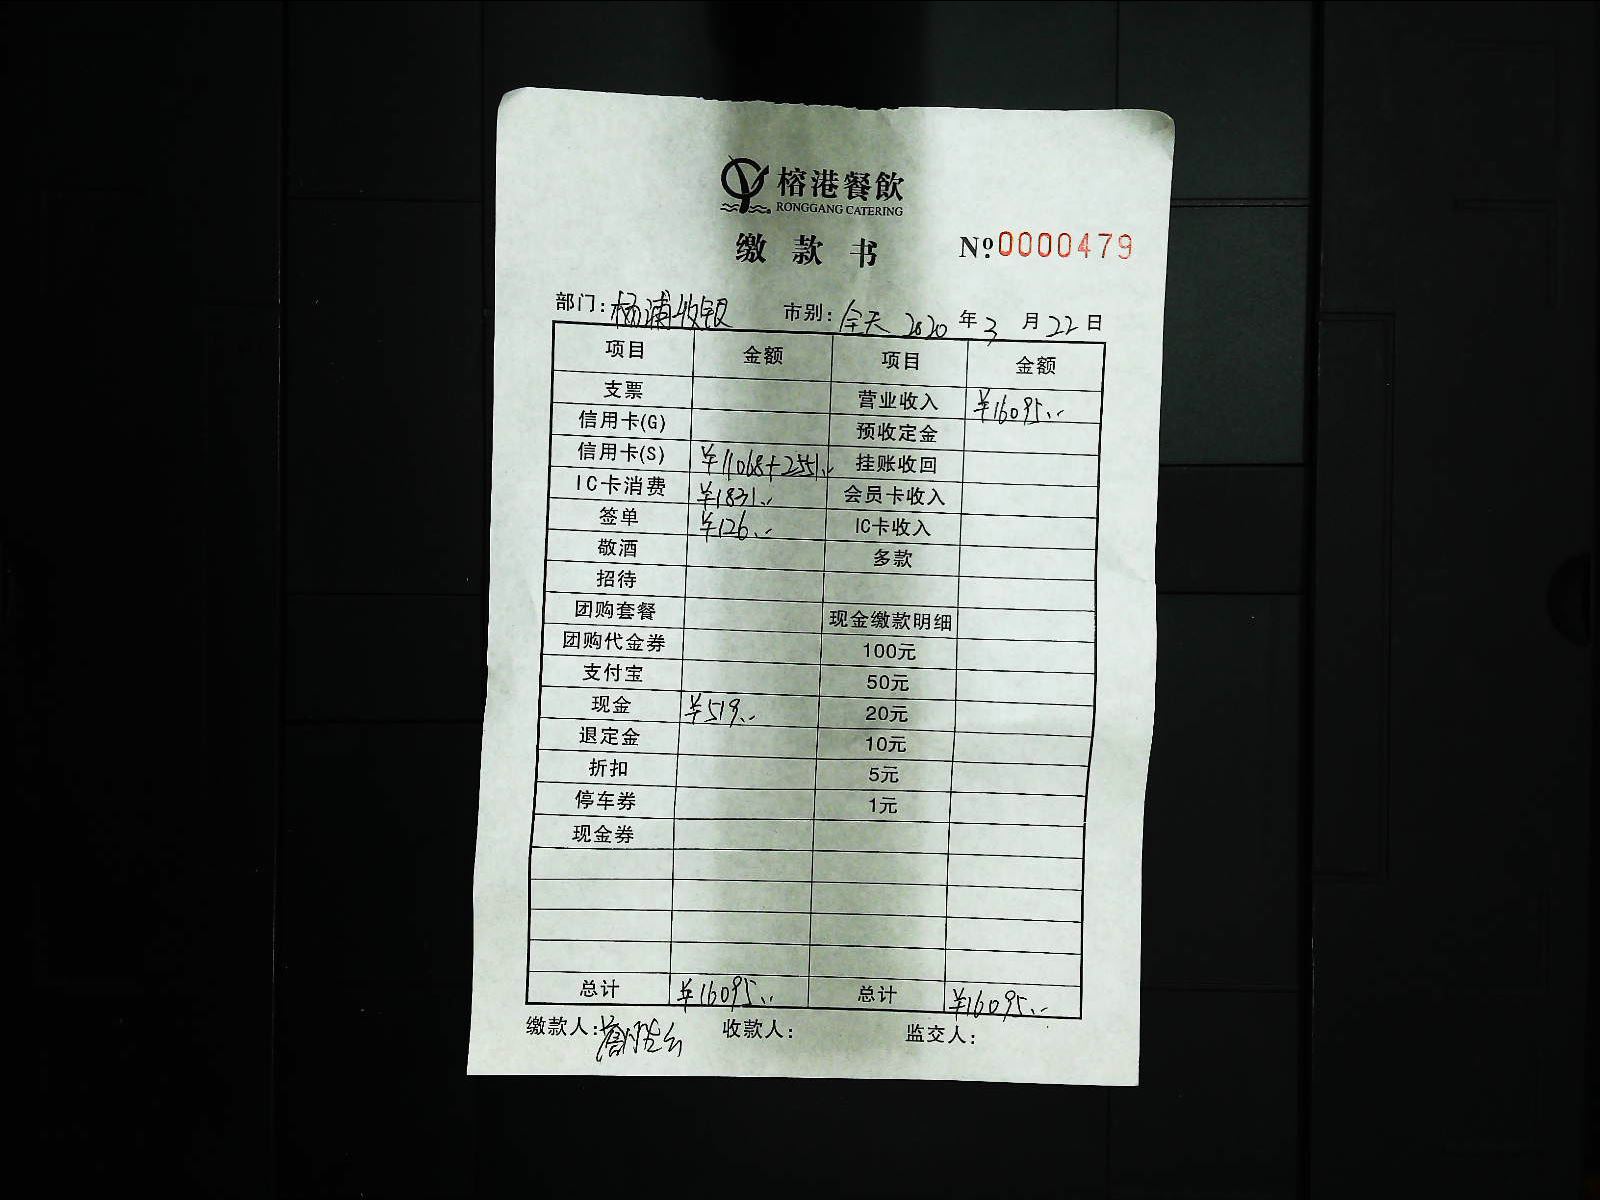 榕港餐飲
RONGGANG CATERING
缴款书 №0000479
部门:杨浦收银 市别:全天 2020年3月22日
项目 金额 项目 金额
支票 营业收入 ¥16095.--
信用卡(G) 预收定金
信用卡(S) ¥11068+2551.-- 挂账收回
IC卡消费 ¥1831.-- 会员卡收入
签单 ¥126.-- IC卡收入
敬酒 多款
招待
团购套餐 现金缴款明细
团购代金券 100元
支付宝 50元
现金 ¥519.-- 20元
退定金 10元
折扣 5元
停车券 1元
现金券
总计 ¥16095.-- 总计 ¥16095.--
缴款人: 收款人: 监交人: